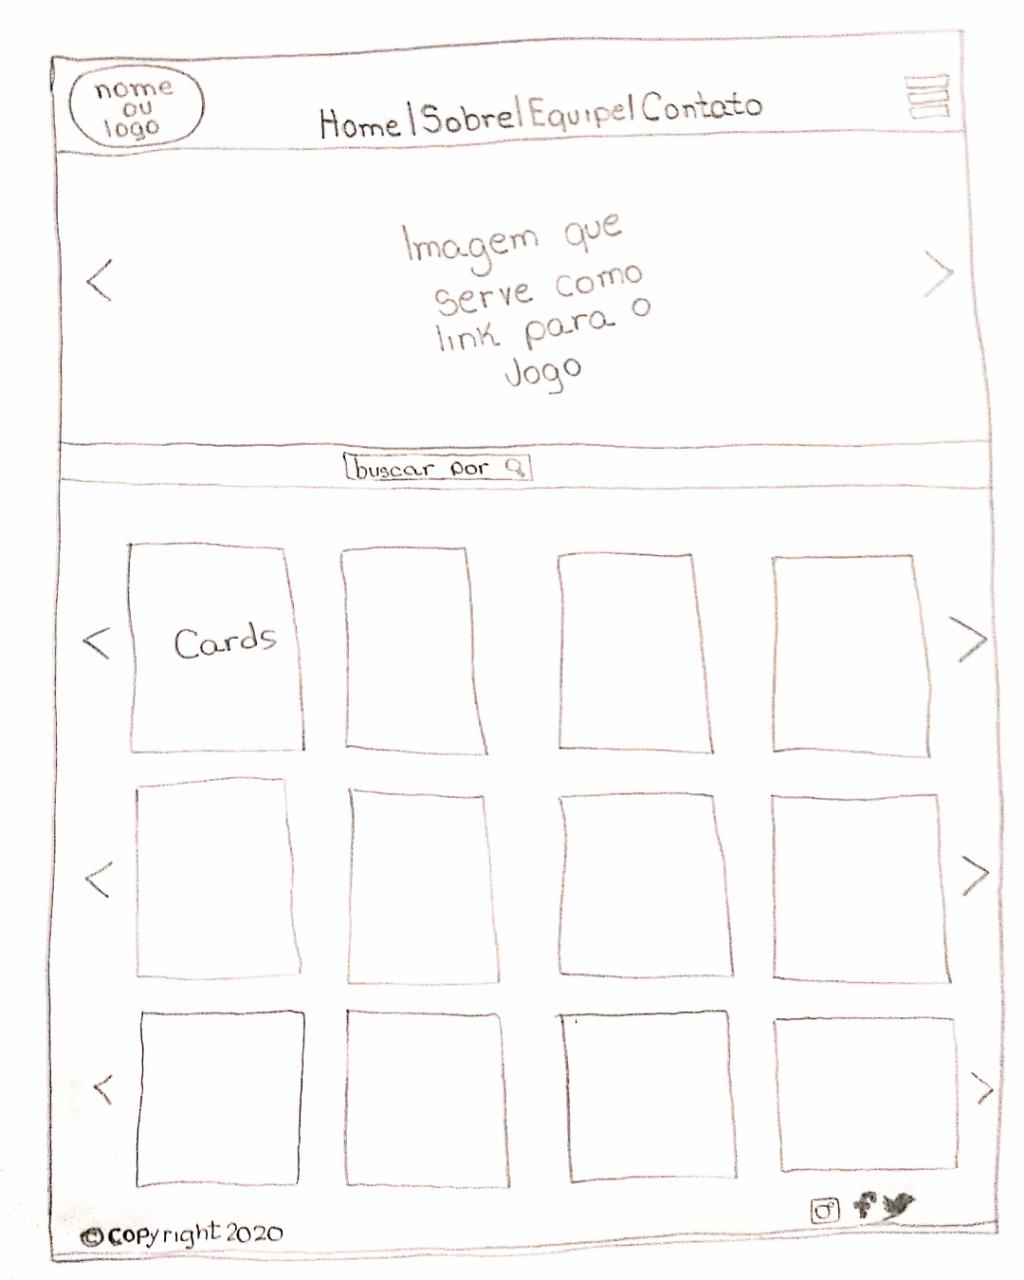 nome
ou
logo
Home|Sobre|Equipe|Contato
Imagem que
serve como
link para o
Jogo
buscar por
Cards
©copyright 2020